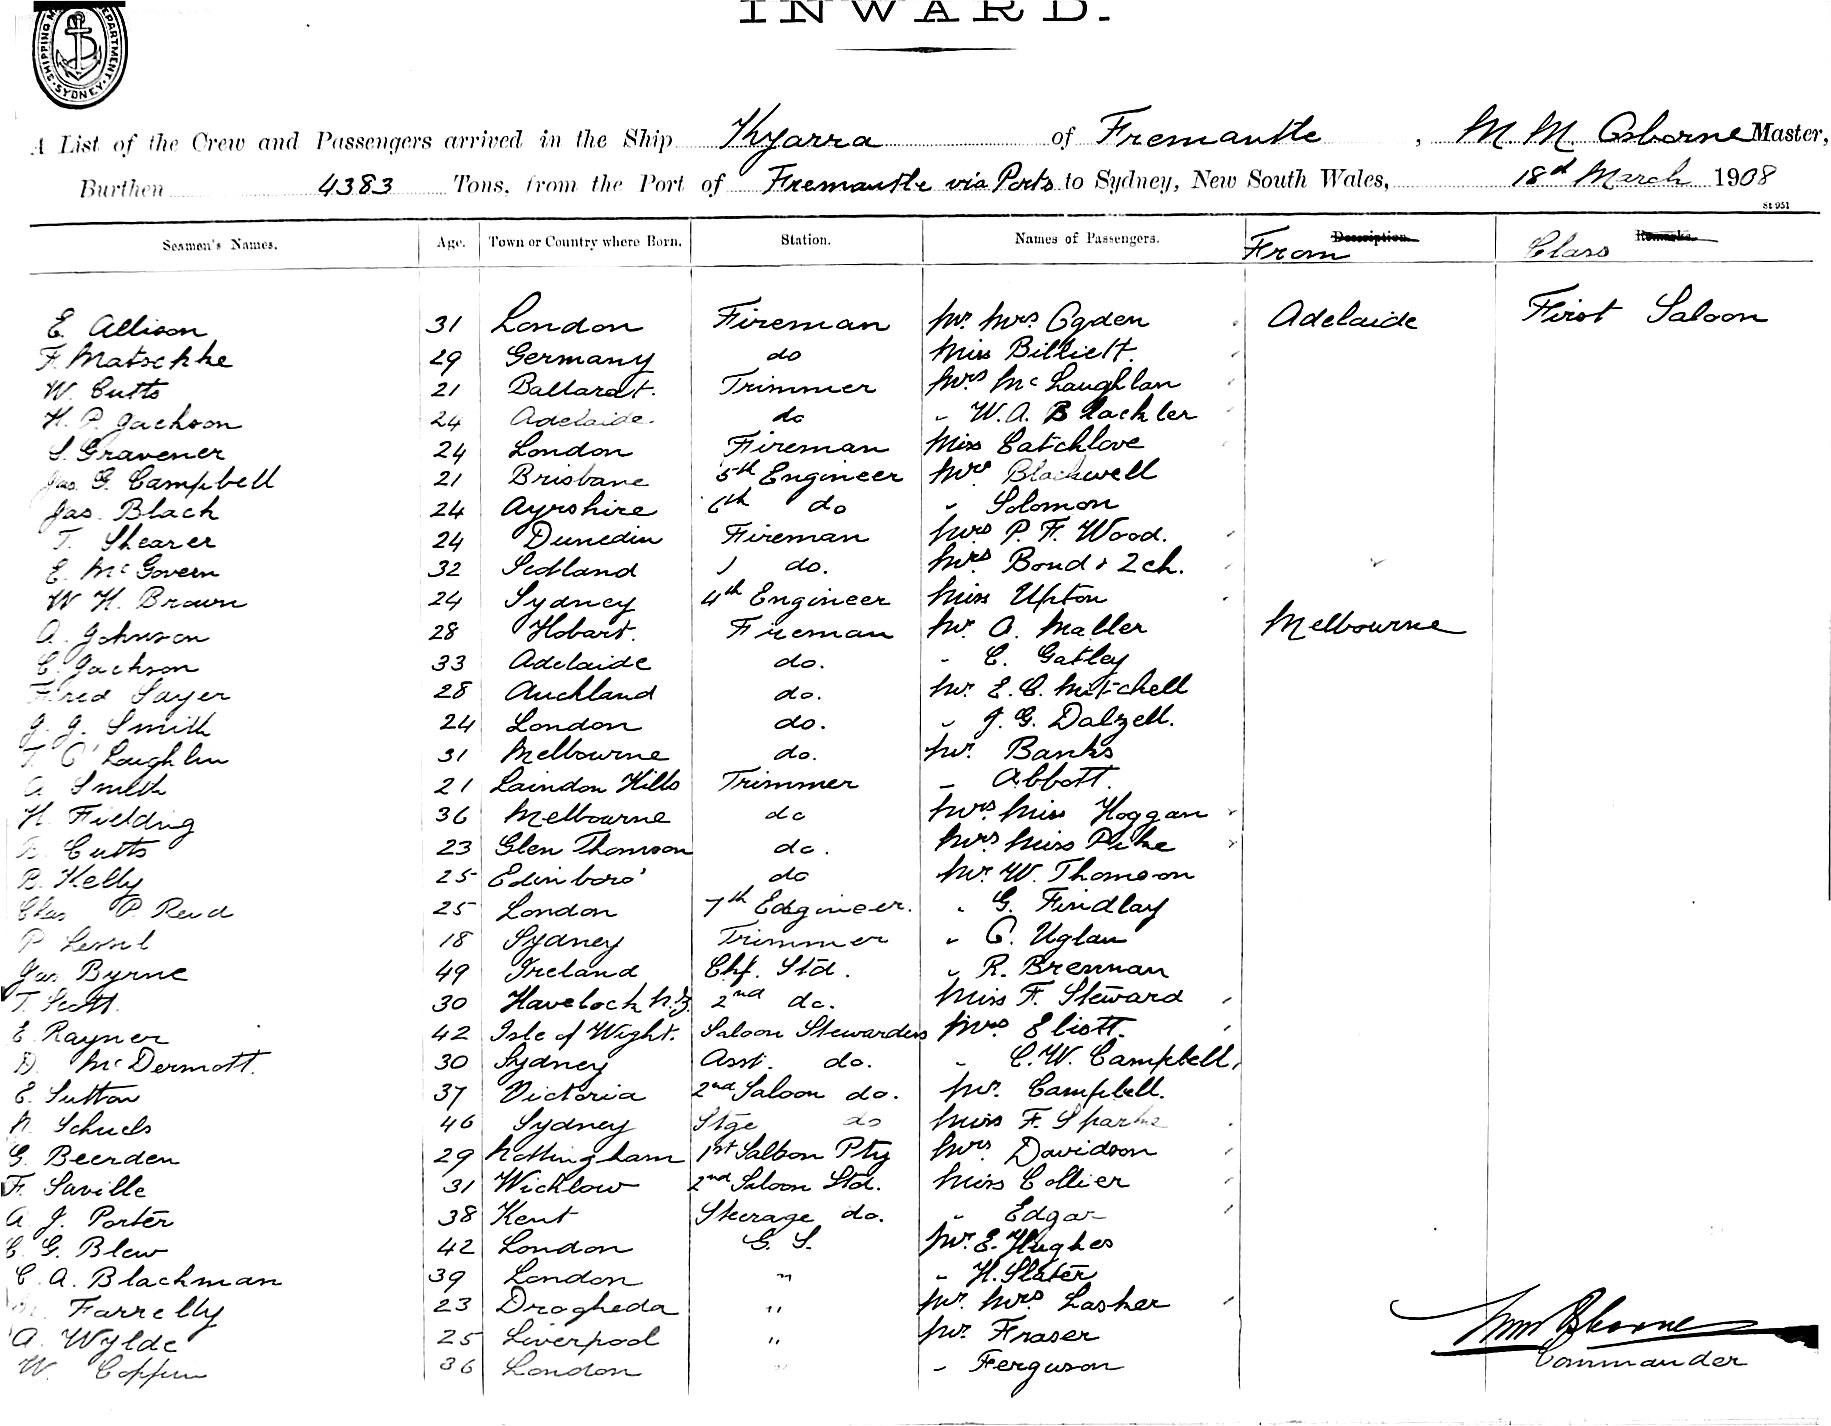 INWARD.
SHIPPING DEPARTMENT SYDNEY
A List of the Crew and Passengers arrived in the Ship Kyarra of Fremantle, M M. Osborne Master,
Burthen 4383 Tons, from the Port of Fremantle via Ports to Sydney, New South Wales, 18d March 1908
St 951
Seamen's Names. Age. Town or Country where Born. Station. Names of Passengers. Description. From Remarks. Class
E Allison 31 London Fireman Mr. Mrs Ogden Adelaide First Saloon
F. Matschke 29 Germany do Miss Billiett.
W. Cutts 21 Ballarat. Trimmer Mrs McLaughlan
H. P. Jackson 24 Adelaide. do " W. A. Blackler
S. Gravener 24 London Fireman Miss Catchlove
Jas. G. Campbell 21 Brisbane 5th Engineer Mrs Blackwell
Jas. Black 24 Ayrshire 6th do " Solomon
T. Shearer 24 Dunedin Fireman Mrs P. F. Wood.
E. McGovern 32 Scotland do. Mrs Bond & 2 ch.
W H. Brown 24 Sydney 4th Engineer Miss Upton
A. Johnson 28 Hobart. Fireman Mr. A. Maller Melbourne
C. Jackson 33 Adelaide do. " C. Gatley
Fred Sayer 28 Auckland do. Mr. E. C. Mitchell
J. J. Smith 24 London do. " J. G. Dalzell.
T. O'Loughlin 31 Melbourne do. Mr. Banks
A. Smith 21 Laindon Hills Trimmer " Abbott.
H. Fielding 36 Melbourne do Mrs. Miss Hoggan
Cutts 23 Glen Thomson do. Mrs Miss Pike
B. Kelly 25 Edinboro' do Mr. W. Thomson
Chas P. Reid 25 London 7th Edgineer. " G. Findlay
P. 18 Sydney Trimmer " C. Uglan
Jas. Byrne 49 Ireland Chf. Std. " R. Brennan
T. Scott. 30 Havelock N.Z. 2nd do. Miss F. Steward
E. Rayner 42 Isle of Wight. Saloon Stewardess Mrs Eliott.
D. McDermott. 30 Sydney Asst. do. " C. W. Campbell,
E. Sutton 37 Victoria 2nd Saloon do. Mr. Campbell.
N. Schuels 46 Sydney Stge do Miss F. Sparks
G. Beerden 29 Nottingham 1st Saloon Pty Mrs Davidson
F. Saville 31 Wicklow 2nd Saloon Std. Miss Collier
A. J. Porter 38 Kent Steerage do. " Edgar
C. G. Blew 42 London G. S. Mr. E. Hughes
C. A. Blackman 39 London " " H. Slater
Farrelly 23 Drogheda " Mr. Mrs Lasker
A. Wylde 25 Liverpool " Mr. Fraser
W. Coppin 36 London " " Ferguson
MM Osborne
Commander